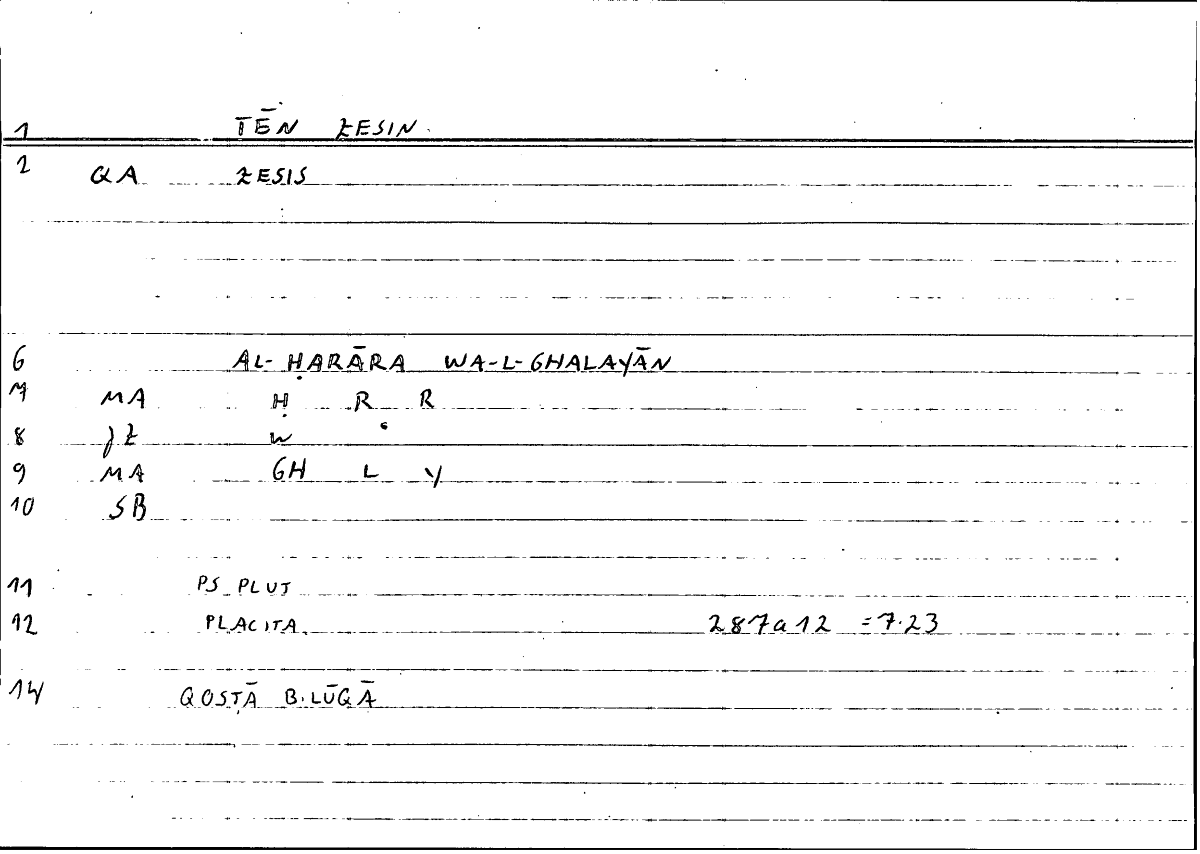 1 TĒN ZESIN
2 QA ZESIS
6 AL-ḤARĀRA WA-L-GHALAYĀN
7 MA Ḥ R R
8 JZ W
9 MA GH L Y
10 SB
11 PS PLUT
12 PLACITA 287a12 = 7.23
14 QOSṬĀ B. LŪQĀ